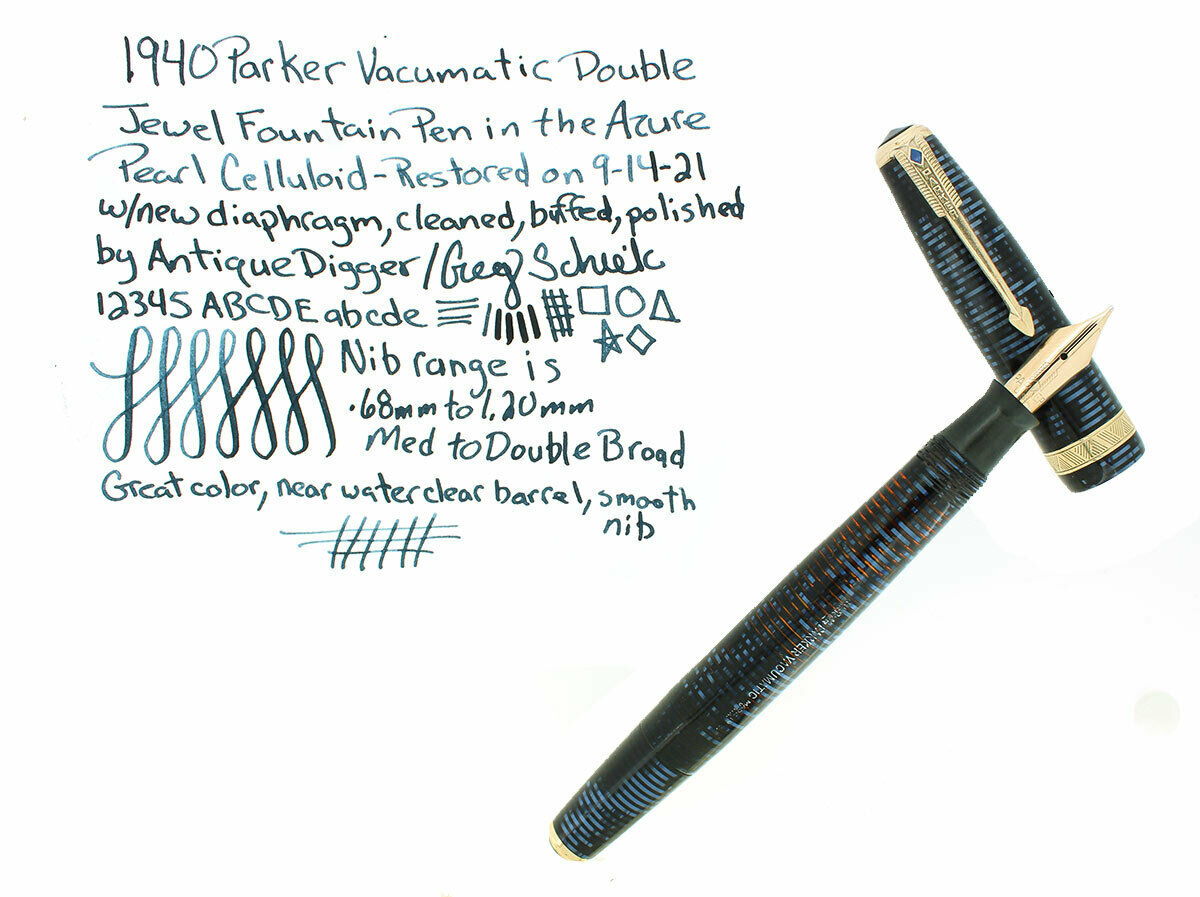 1940 Parker Vacumatic Double
Jewel Fountain Pen in the Azure
Pearl Celluloid-Restored on 9-14-21
w/new diaphragm, cleaned, buffed, polished
by Antique Digger/Greg
12345 ABCDE abcde
Nib range is
.68mm to 1.20mm
Med to Double Broad
Great color, near water clear barrel, smooth
nib
PARKER
PARKER VACUMATIC